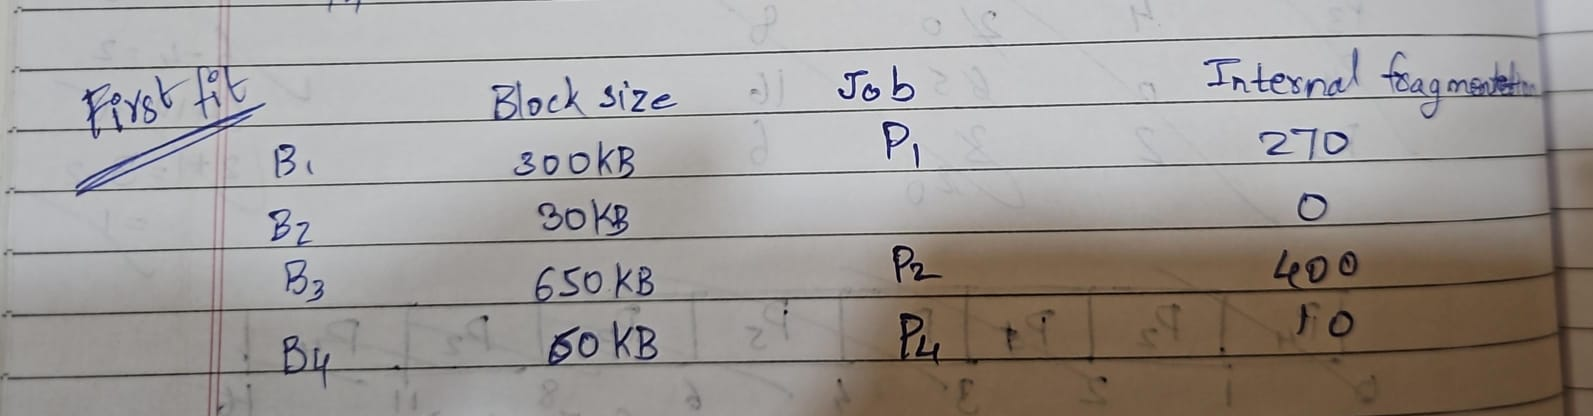 First fit Block size Job Internal fragmentation
B1 300KB P1 270
B2 30KB 0
B3 650KB P2 400
B4 60KB P4 10